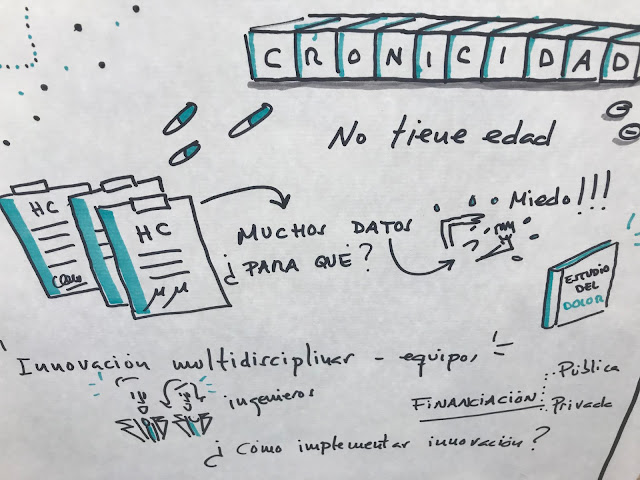 CRONICIDAD
No tiene edad
HC
HC
MUCHOS DATOS
¿PARA QUÉ?
Miedo!!!
ESTUDIO
DEL
DOLOR
Innovación multidisciplinar - equipos
ingenieros
FINANCIACIÓN
Pública
Privada
¿Cómo implementar innovación?